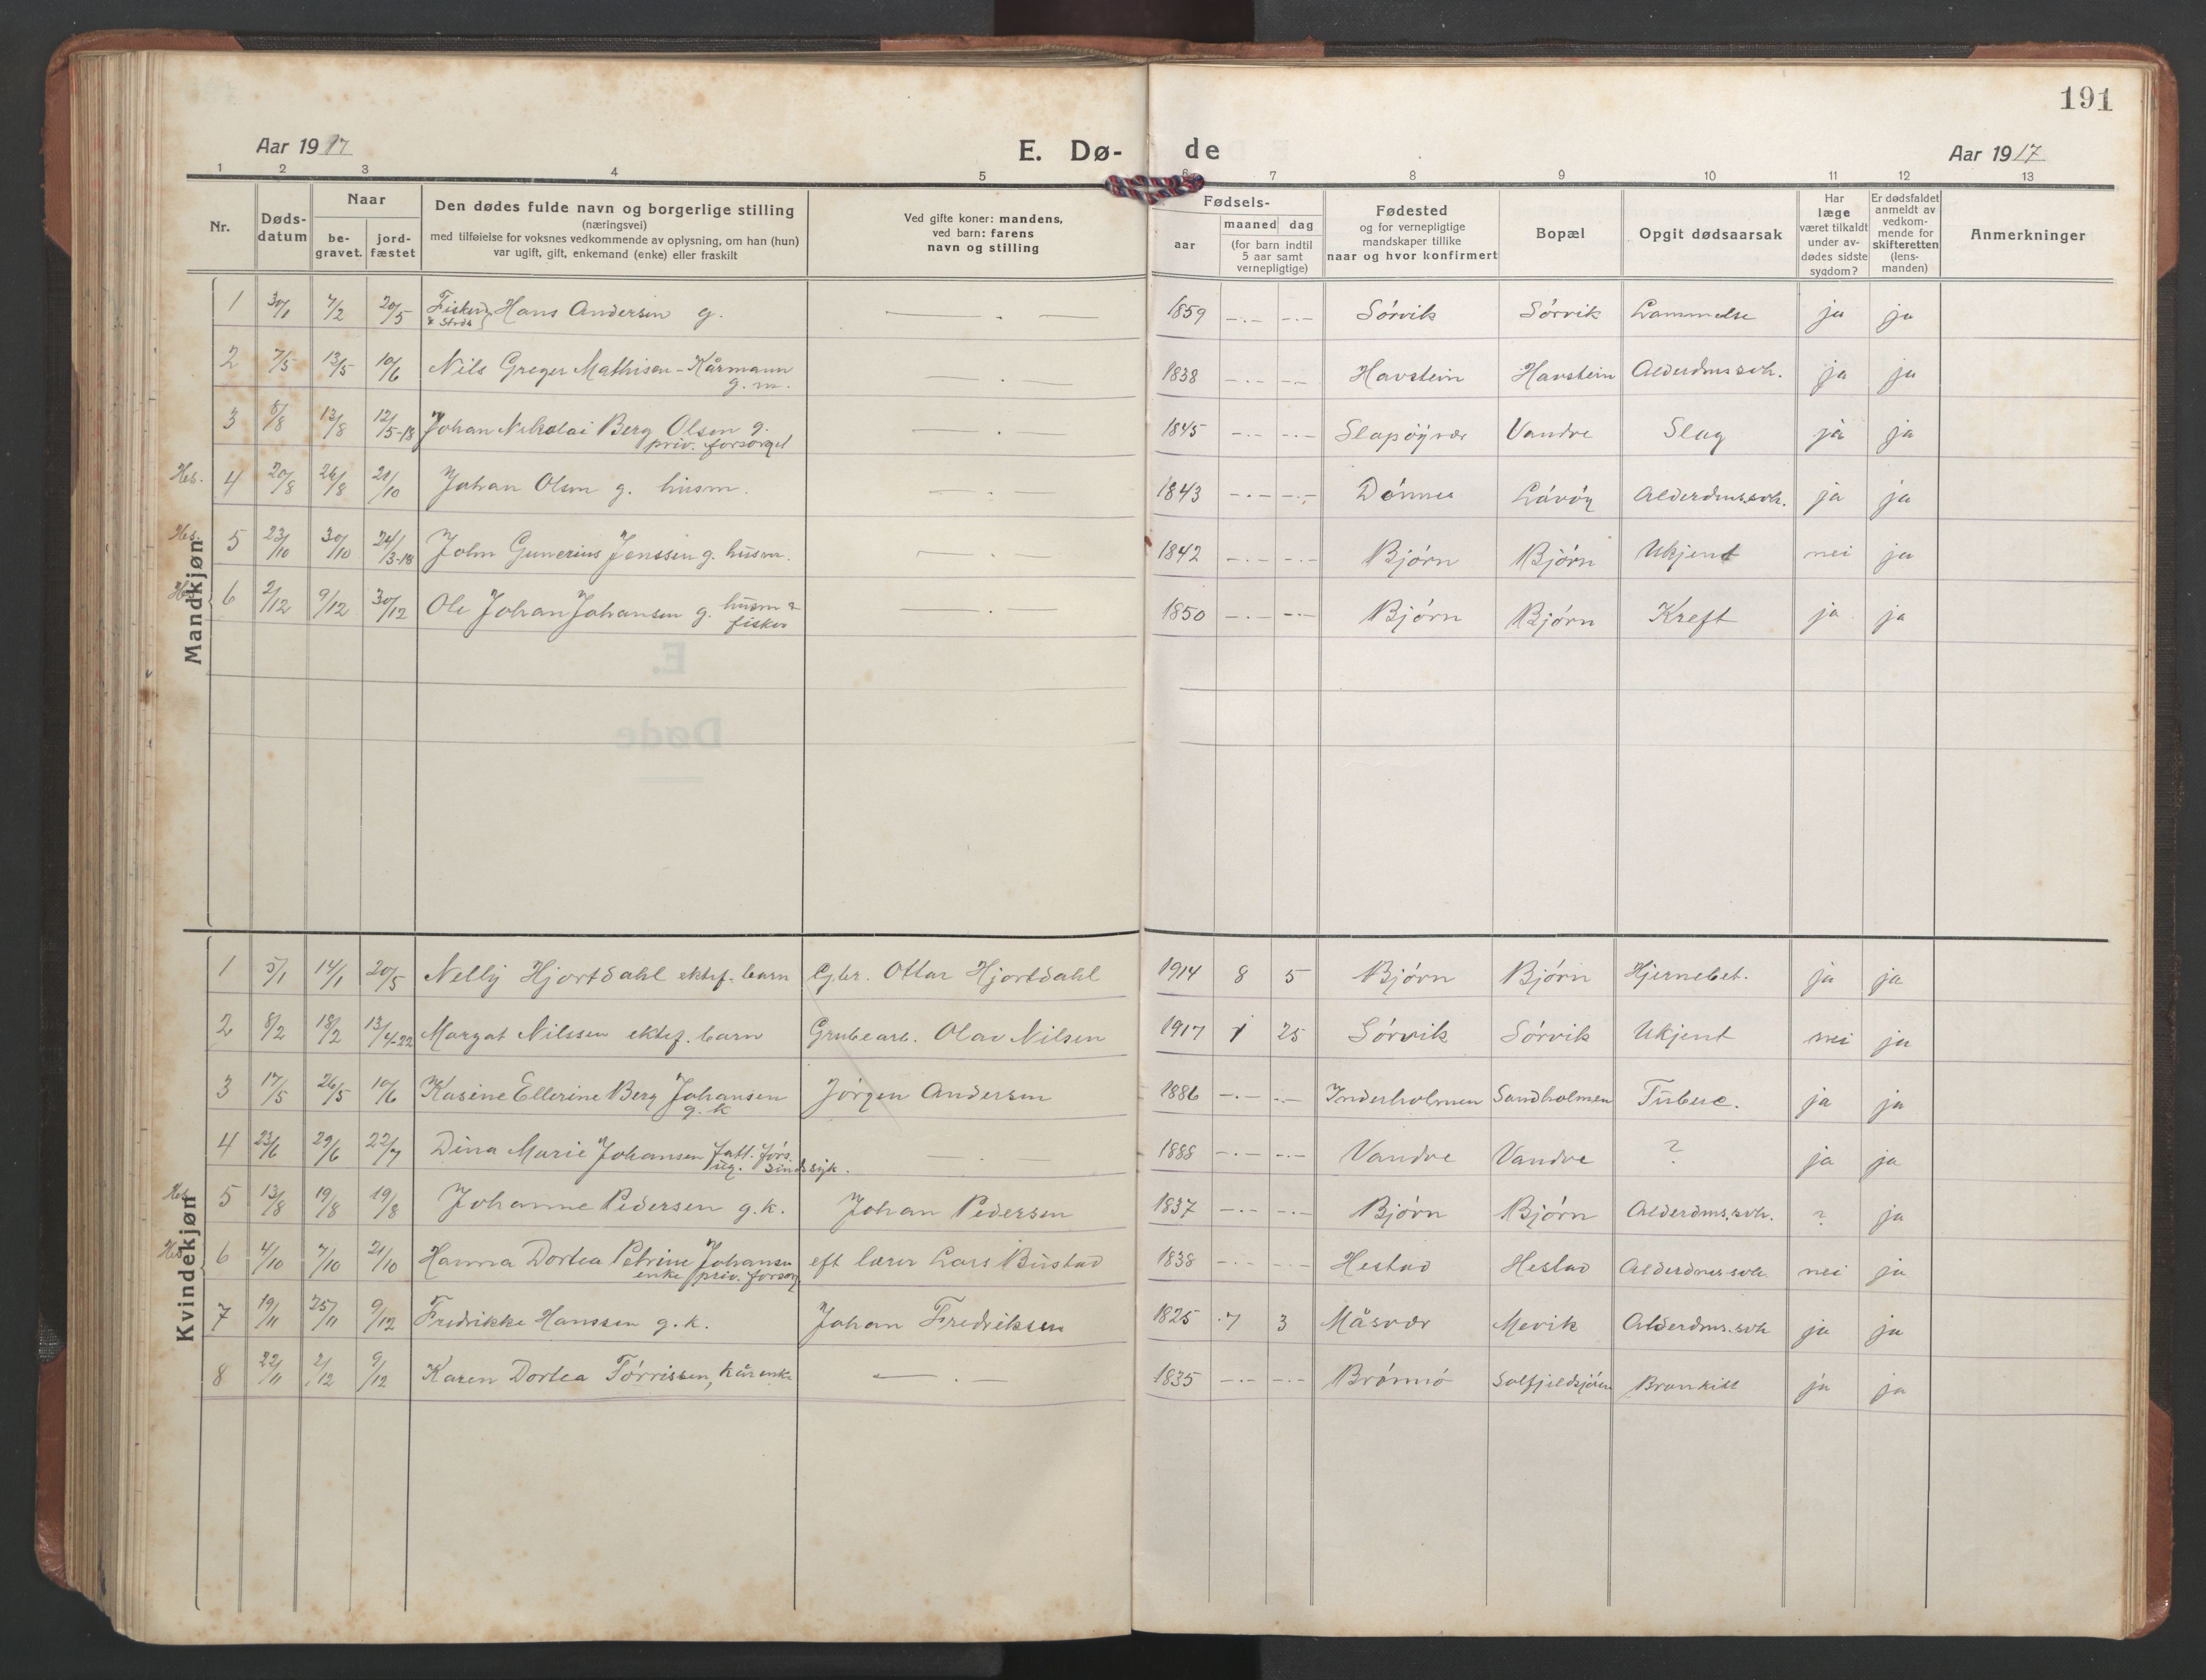 191
Aar 1917 E. Dø- de Aar 1917
1 2 3 4 5 6 7 8 9 10 11 12 13
Nr.
Døds-
datum
Naar
be-
gravet.
jord-
fæstet
Den dødes fulde navn og borgerlige stilling
(næringsvei)
med tilføielse for voksnes vedkommende av oplysning, om han (hun)
var ugift, gift, enkemand (enke) eller fraskilt
Ved gifte koner: mandens,
ved barn: farens
navn og stilling
Fødsels-
aar
maaned dag
(for barn indtil
5 aar samt
vernepligtige)
Fødested
og for vernepligtige
mandskaper tillike
naar og hvor konfirmert
Bopæl
Opgit dødsaarsak
Har
læge
været tilkaldt
under av-
dødes sidste
sygdom?
Er dødsfaldet
anmeldt av
vedkom-
mende for
skifteretten
(lens-
manden)
Anmerkninger
Mandkjøn
1 30/1 7/2 20/5 Fisker & Strds Hans Andersen g. — . — 1859 —.— —.— Sórvik Sórvik Lammelse ja ja
2 7/5 13/5 10/6 Nils Greger Mathisen - Kårmann
g. m. — . — 1838 —.— —.— Havstein Havstein Alderdms.svk. ja ja
3 8/8 13/8 12/5-18 Johan Nikolai Berg Olsen g.
priv. forsørget — . — 1845 —.— —.— Slapöyvær Vandve Slag ja ja
Hes. 4 20/8 26/8 21/10 Johan Olsen g. husm. — . — 1843 —.— —.— Dónnes Lávóy Alderdms.svk. ja ja
Hes. 5 23/10 30/10 24/3-18 John Gunerius Jenssen g. husm. — . — 1842 —.— —.— Bjórn Bjórn Ukjent nei ja
Hes. 6 2/12 9/12 30/12 Ole Johan Johansen g. husm &
fisker — . — 1850 —.— —.— Bjórn Bjórn Kreft ja ja
E.
Døde
Kvindekjøn
1 5/1 14/1 20/5 Nelly Hjortdahl ektef. barn Gbr. Ottar Hjortdahl 1914 8 5 Bjórn Bjórn Hjernebet. ja ja
2 8/2 18/2 13/4-22 Margat Nilssen ektef. barn Grubearb. Olav Nilsen 1917 1 25 Sórvik Sórvik Ukjent nei ja
3 17/5 26/5 10/6 Kasine Ellerine Berg Johansen
g. k Jórgen Andersen 1886 —.— —.— Inderholmen Sandholmen Tuberc. ja ja
4 23/6 29/6 22/7 Dina Marie Johansen fatt. fórs.
ug. sindssyk. — 1888 —.— —.— Vandve Vandve ? ja ja
Hes. 5 13/8 19/8 19/8 Johanne Pedersen g.k. Johan Pedersen 1837 —.— —.— Bjórn Bjórn Alderdms.svk. ? ja
Hes. 6 4/10 7/10 21/10 Hanna Dortea Petrine Johansen
enke priv. forsørg eft lærer Lars Bustad 1838 —.— —.— Hestad Hestad Alderdms svk. nei ja
7 19/11 25/11 9/12 Fredrikke Hanssen g.k. Johan Fredriksen 1825 7 3 Måsvær Mevik Alderdms.svk ja ja
8 22/11 2/12 9/12 Karen Dortea Tórrissen, kårenke — . — 1835 —.— —.— Brónnó Solfjeldsjóen Bronkitt ja ja